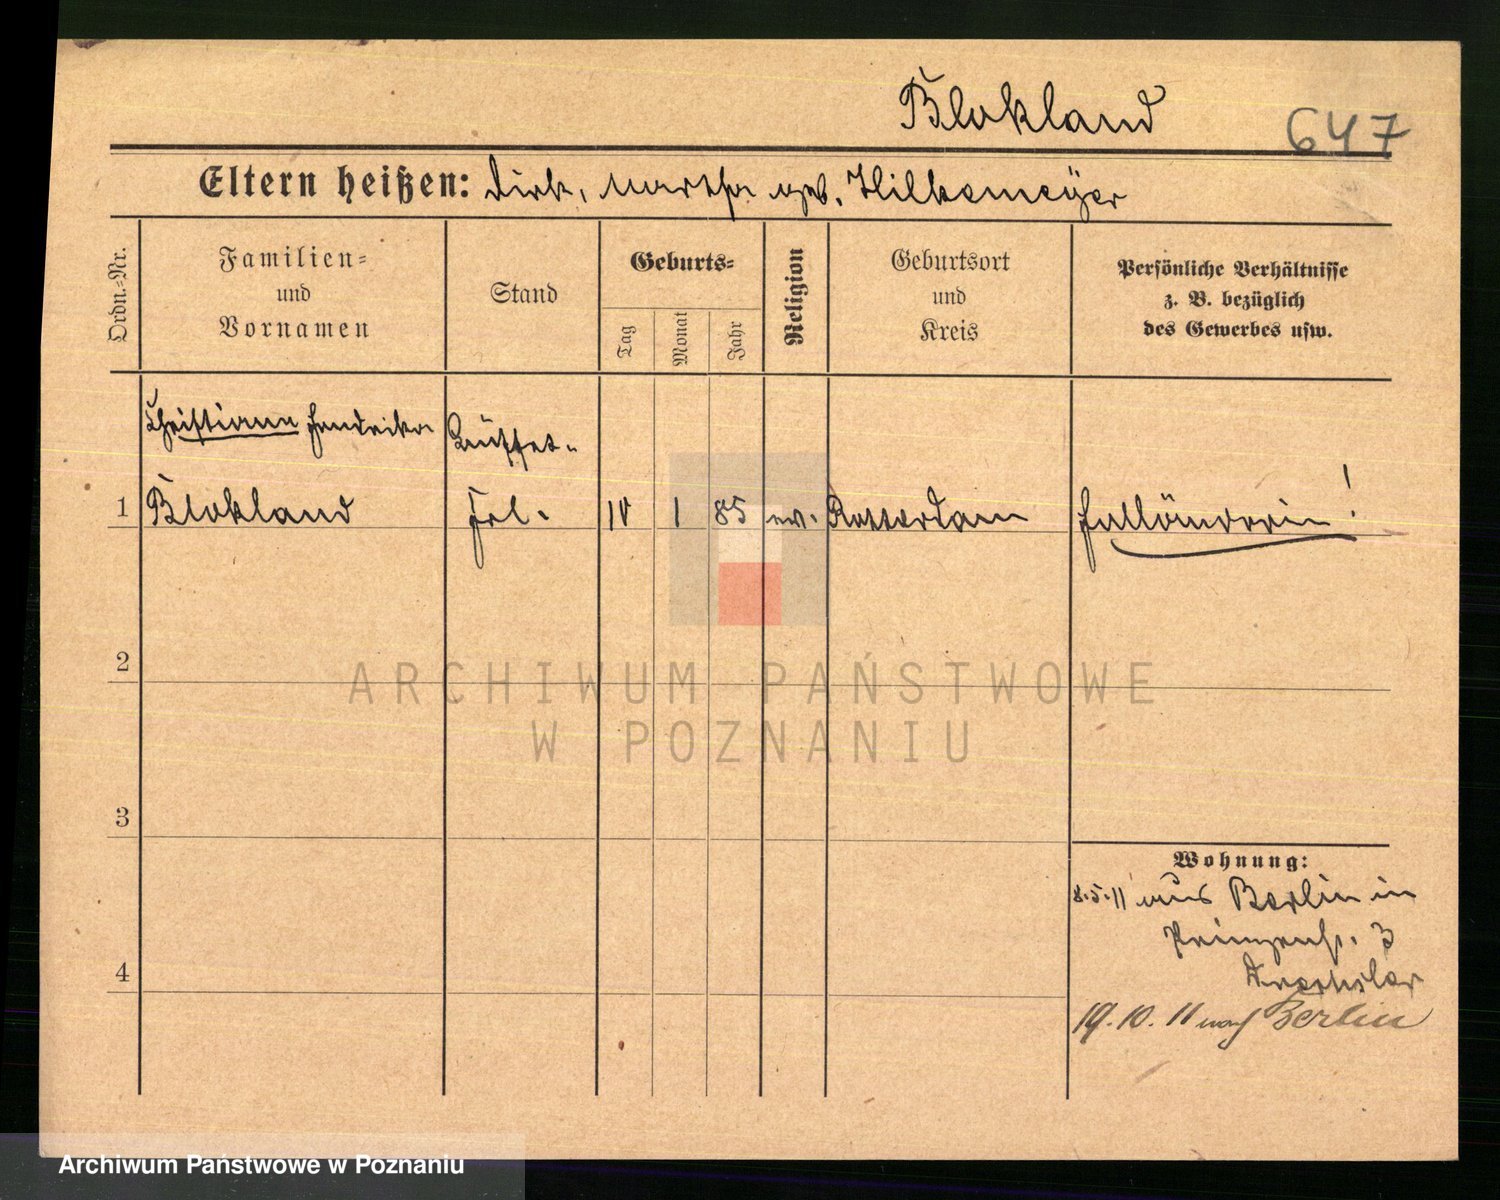 Blokland
647
Eltern heißen: Dirk, Martha geb. Hilkemeÿer
Ordn.-Nr.
Familien-
und
Vornamen
Stand
Geburts-
Tag
Monat
Jahr
Religion
Geburtsort
und
Kreis
Persönliche Verhältnisse
z. B. bezüglich
des Gewerbes usw.
Christiana Hendrika
Büffet-
1 Blokland Frl. 10 1 85 ev. Rotterdam Holländerin!
2
ARCHIWUM PAŃSTWOWE
W POZNANIU
3
Wohnung:
8.5.11 aus Berlin in
Prinzenstr. 3
4
19.10.11 nach Berlin
Archiwum Państwowe w Poznaniu